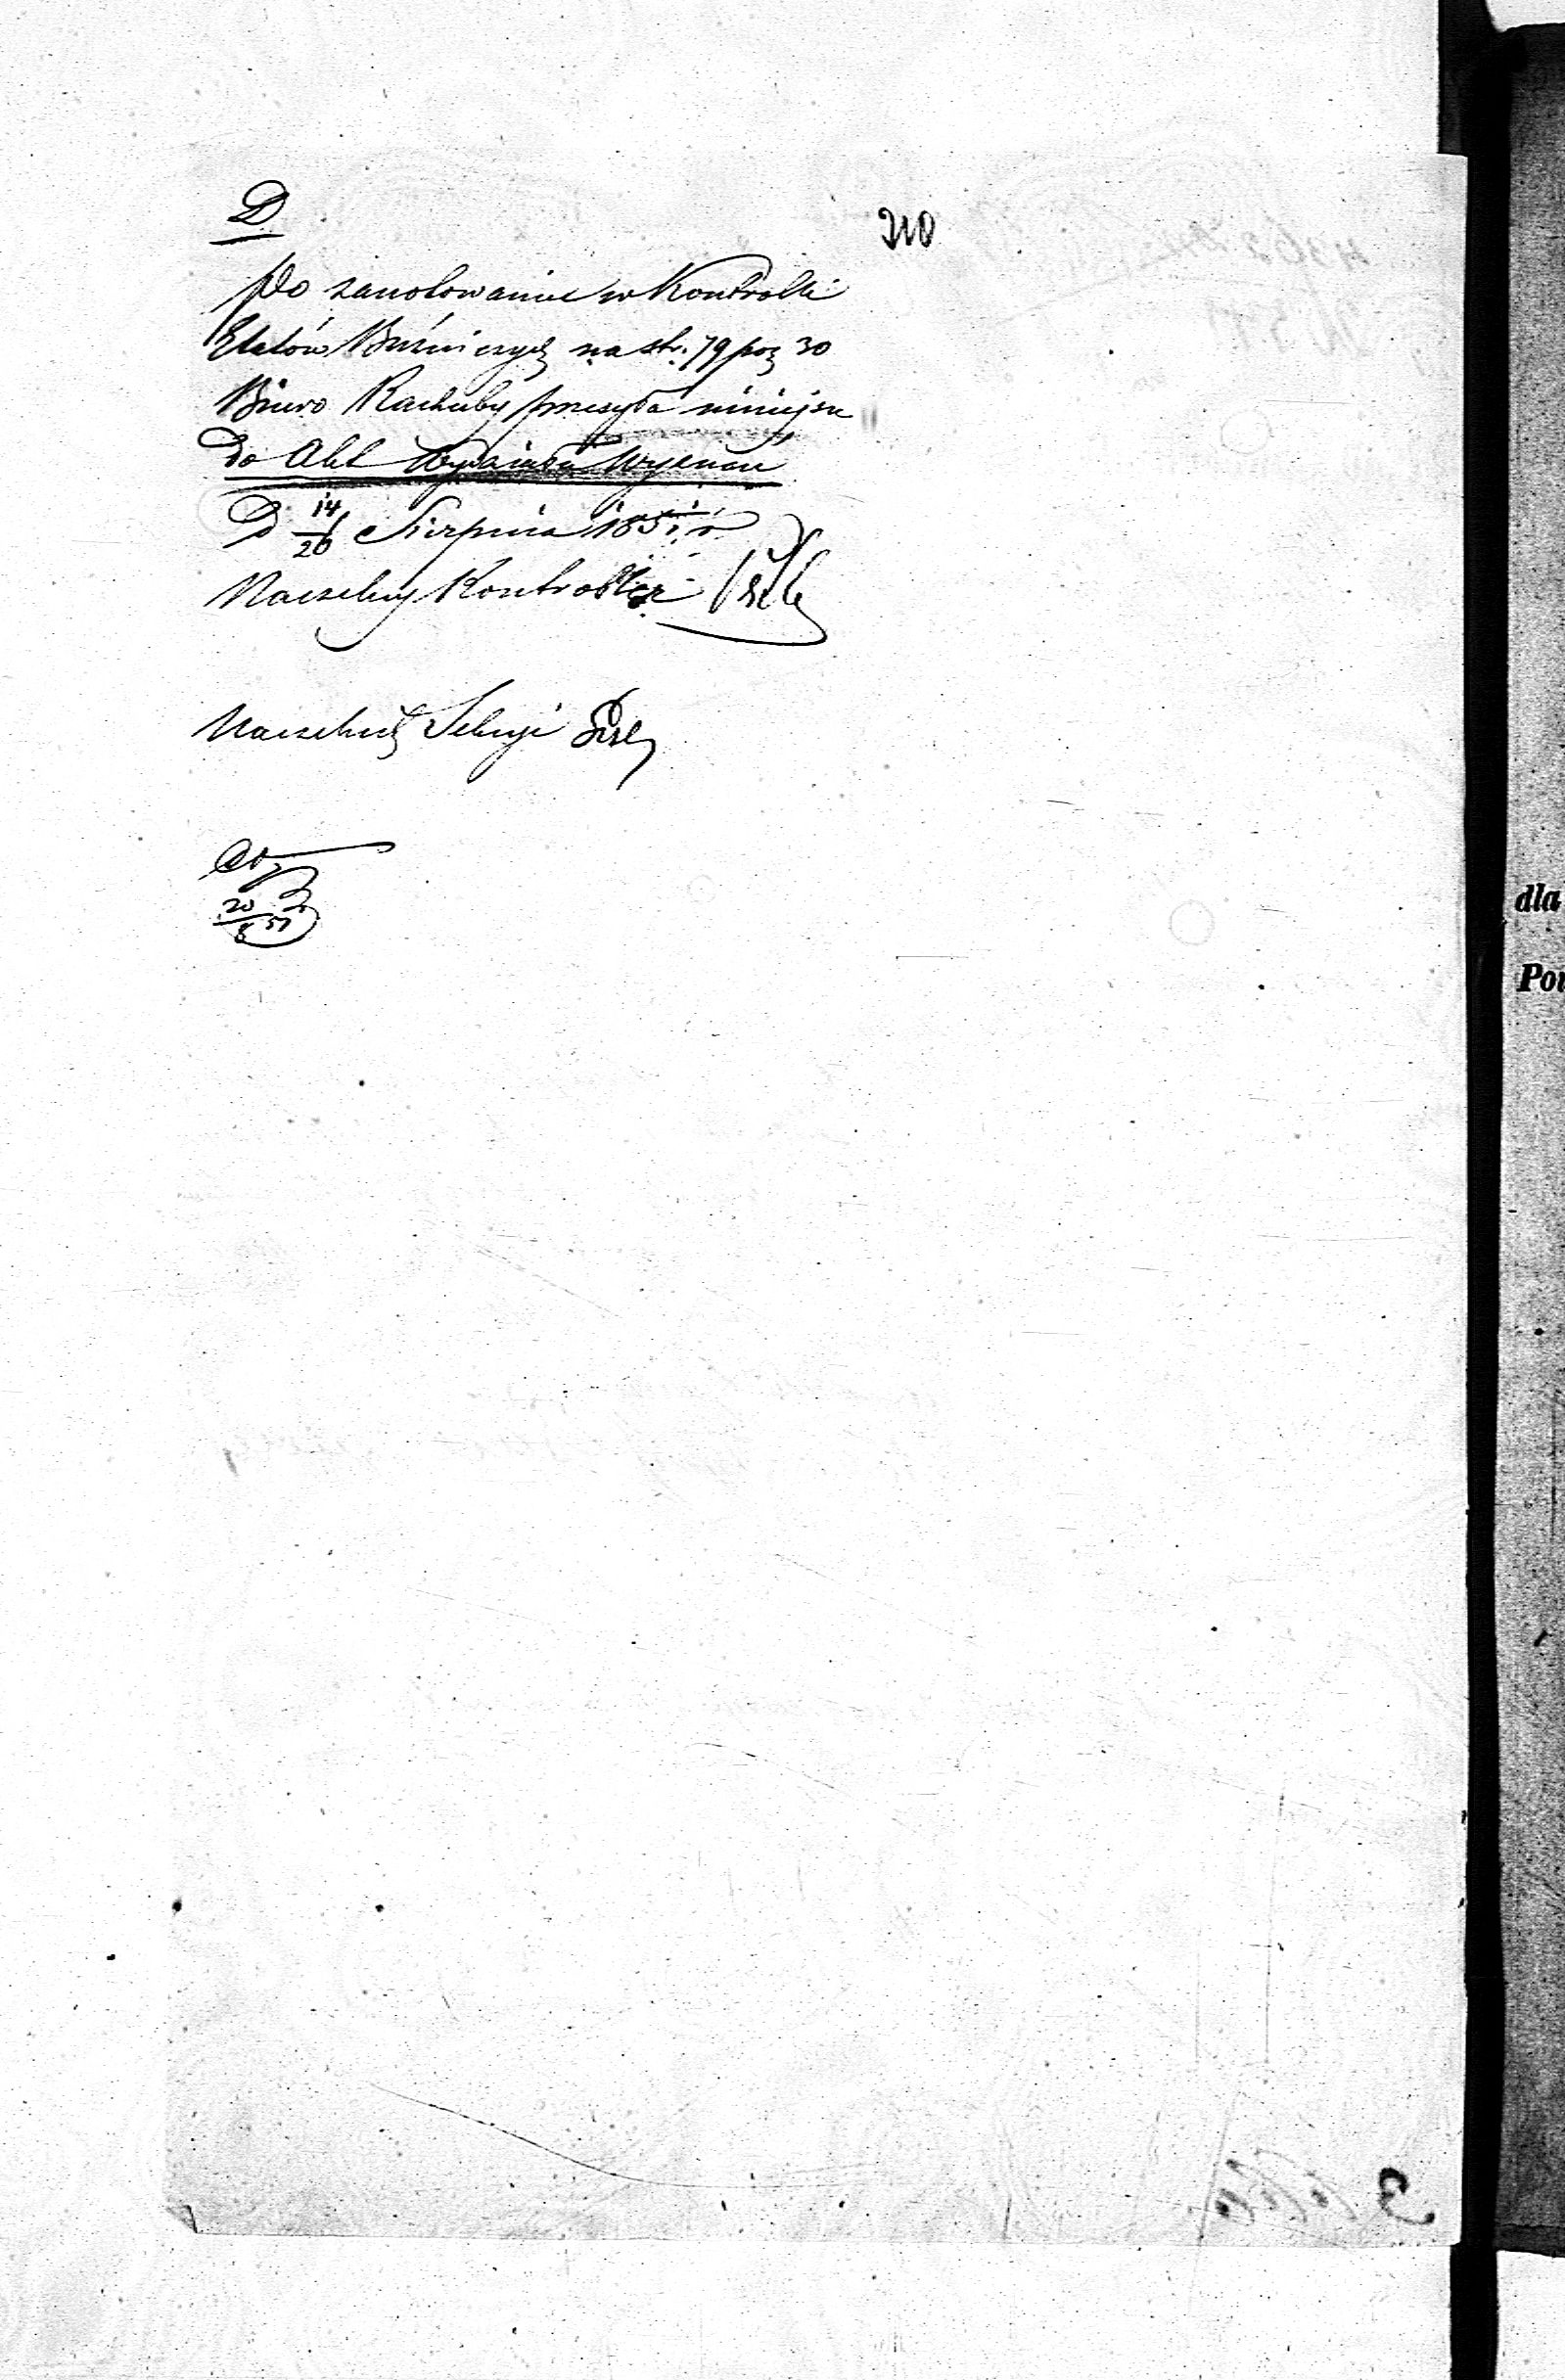 D
210
Po zanotowaniu w Kontrolli
Etatów Bużniczych na str. 79 poz 30
Biuro Rachuby przesyła niniejsze
Do Akt Wydziału Wyznań
D 14/26 Sierpnia 1851 r
Naczelny Kontroller
Naczelnik Sekcyi
20/8 51
dla
Pow